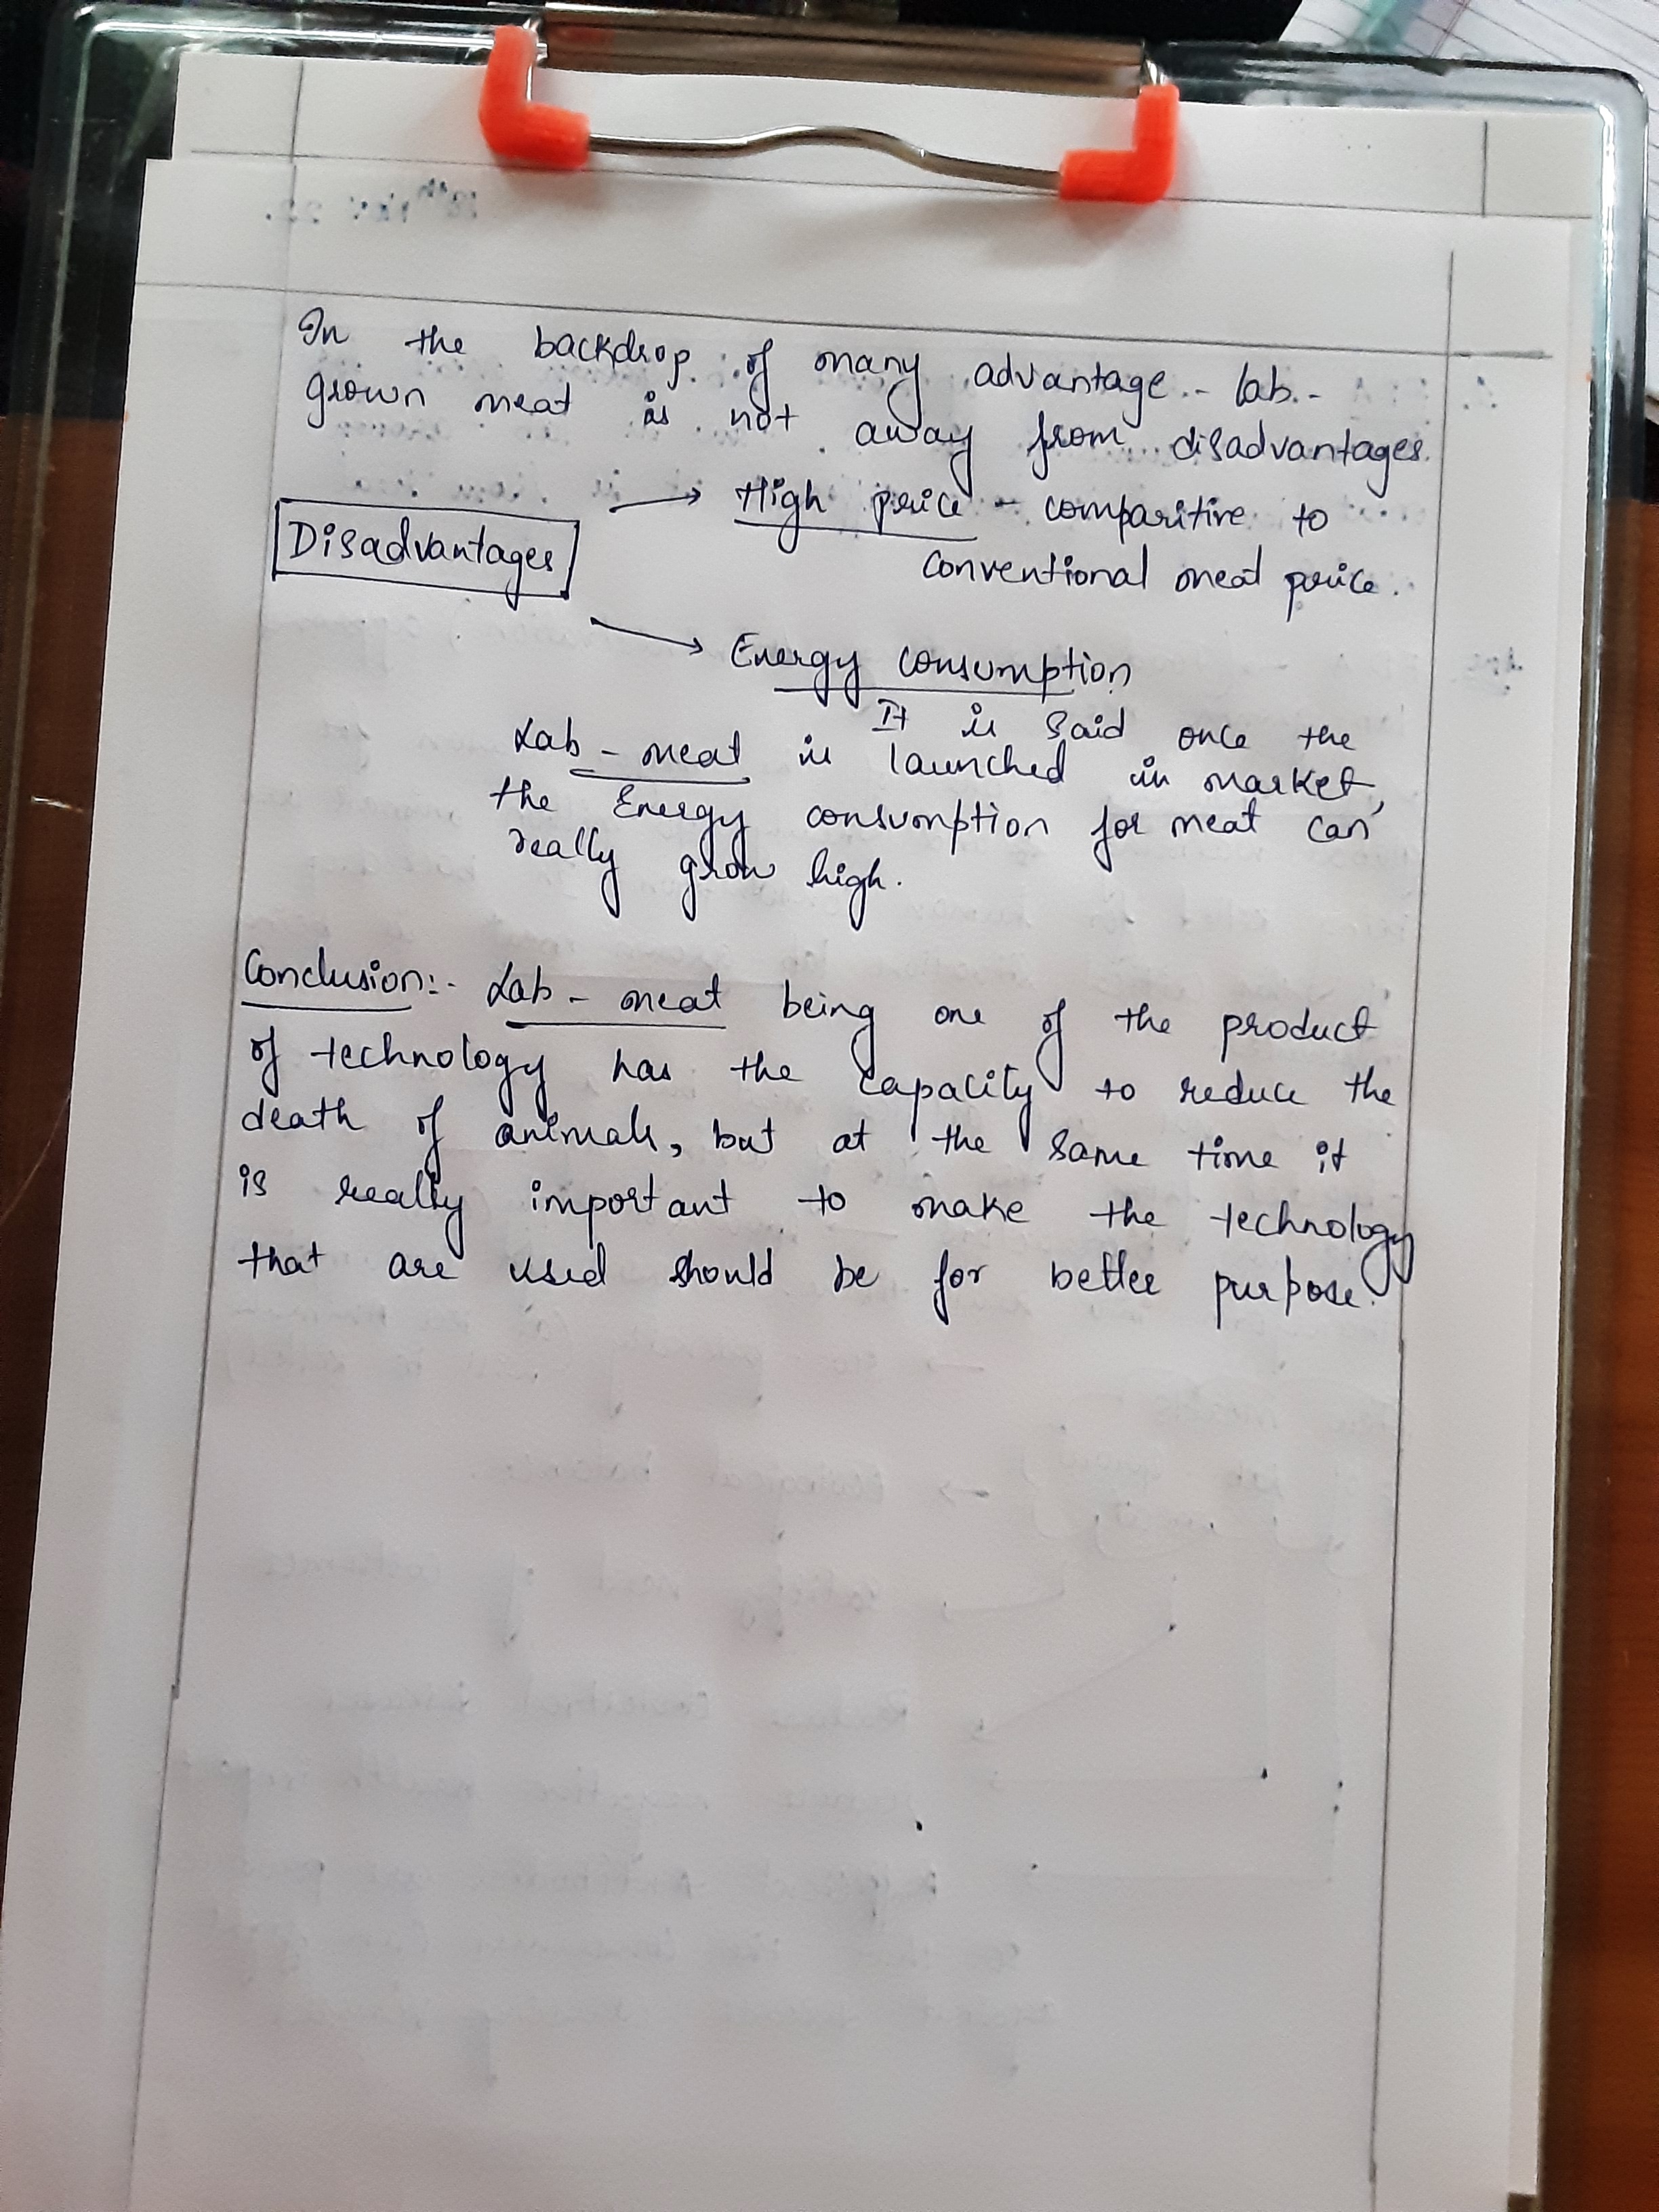 In the backdrop of many advantage - lab -
grown meat is not away from disadvantages.
Disadvantages → High price - comparitive to
conventional meat price.
→ Energy consumption
It is said once the
Lab - meat is launched in market,
the Energy consumption for meat can
really grow high.
Conclusion:- Lab - meat being one of the product
of technology has the capacity to reduce the
death of animals, but at the same time it
is really important to make the technology
that are used should be for better purpose.